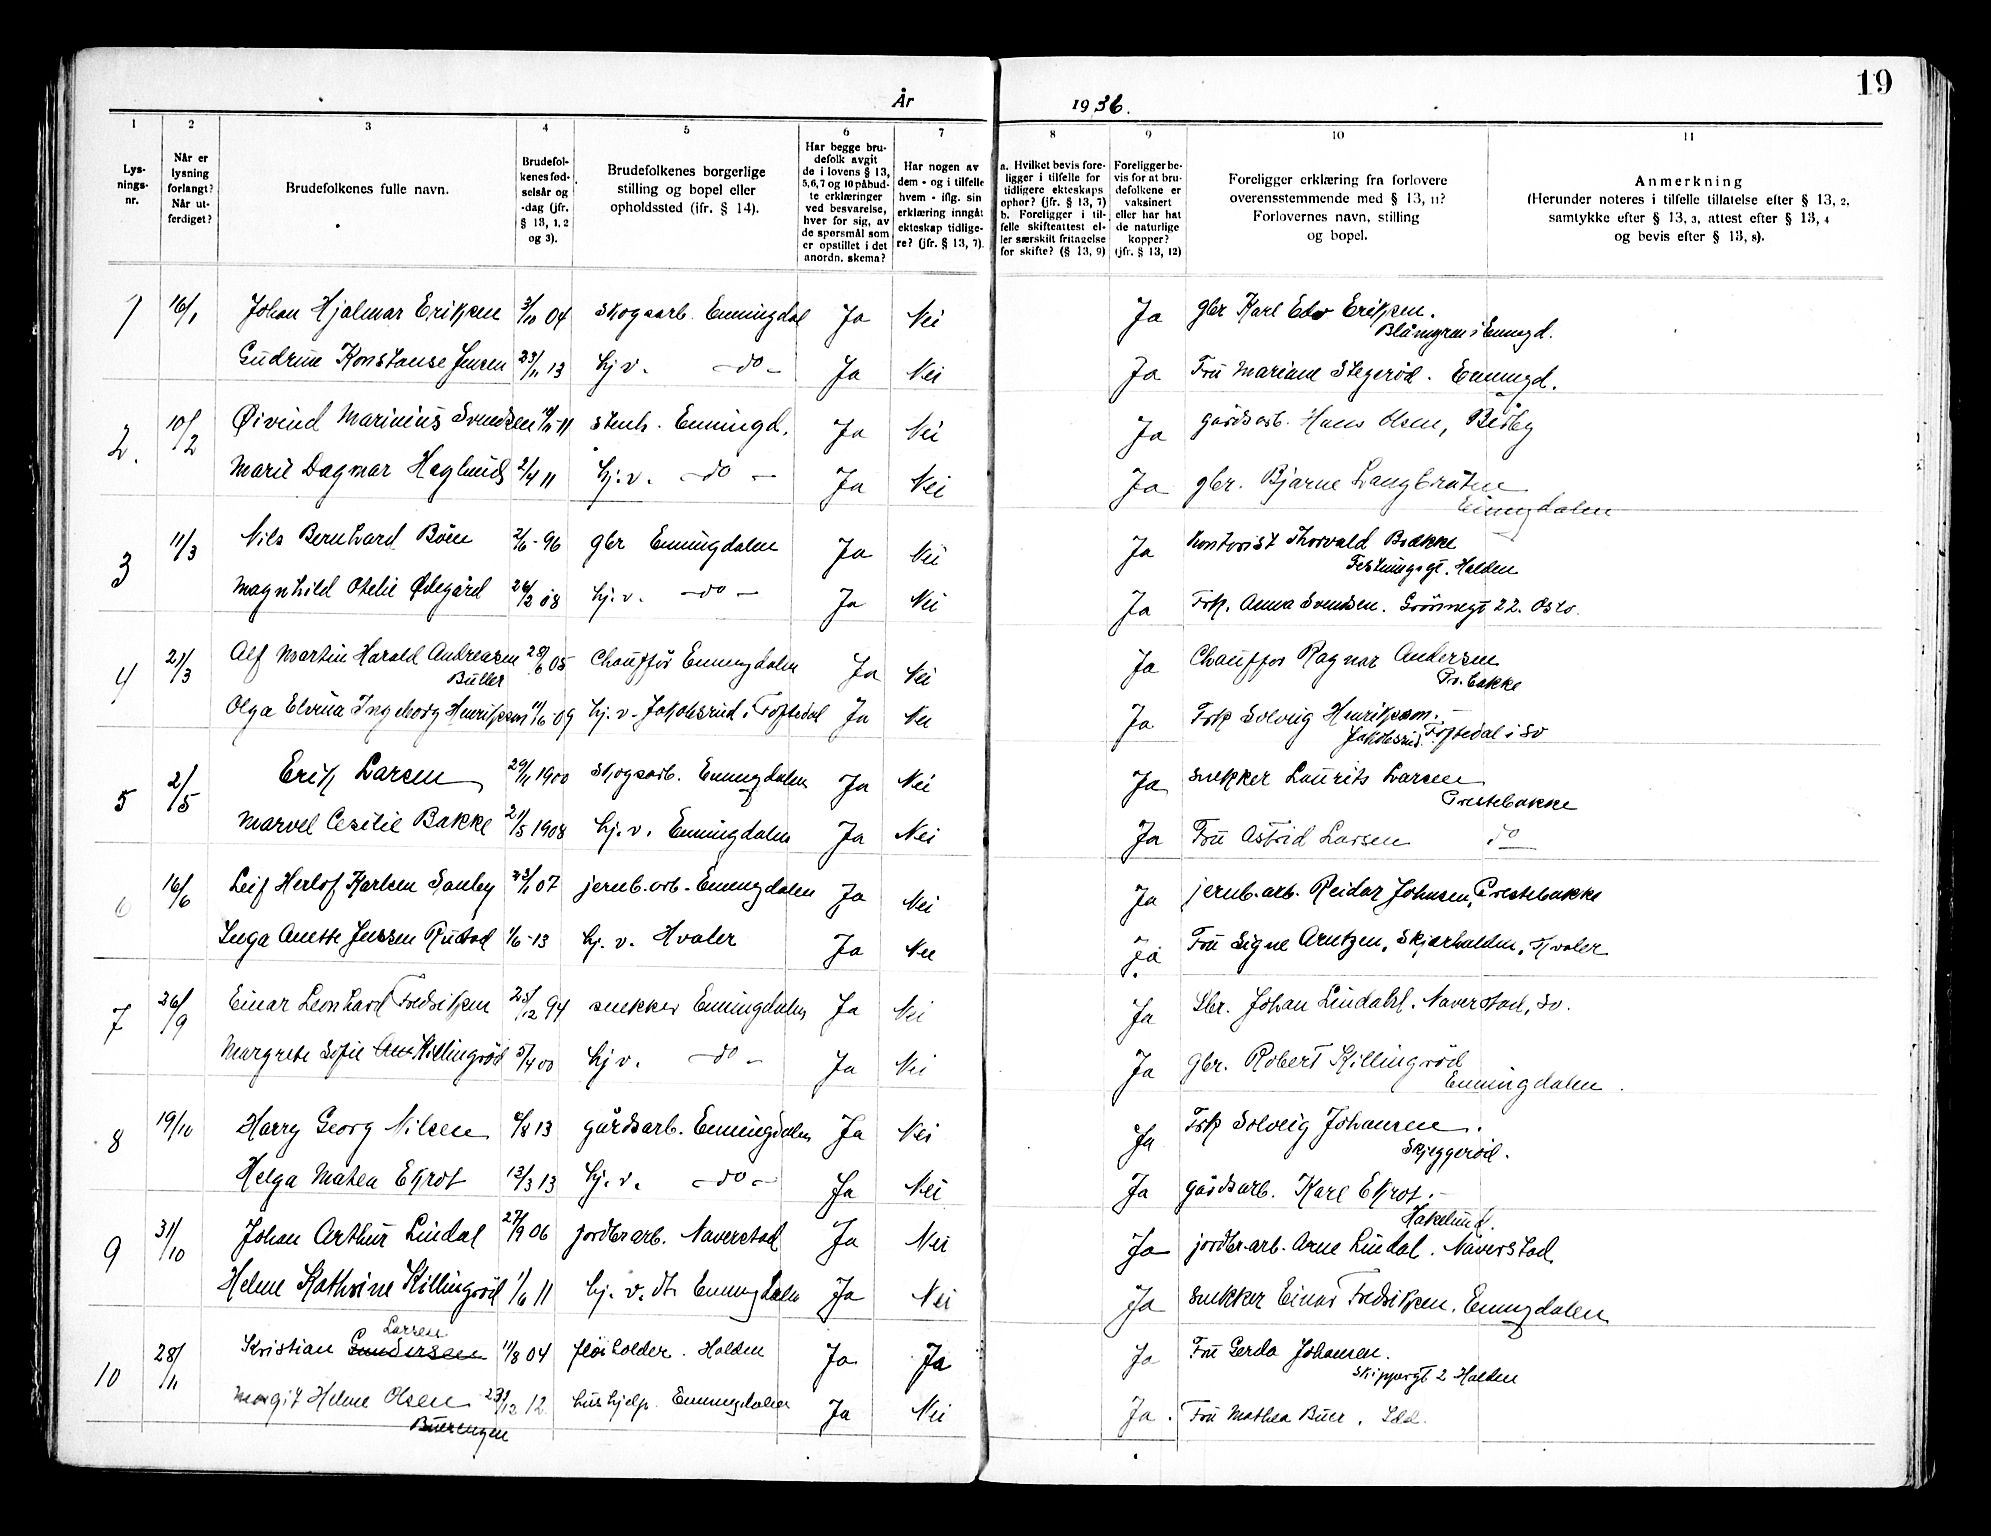 19
År 1936.
1 2 3 4 5 6 7 8 9 10 11
Lys-
nings-
nr.
Når er
lysning
forlangt?
Når ut-
ferdiget?
Brudefolkenes fulle navn.
Brudefol-
kenes fød-
selsår og
-dag (jfr.
§ 13, 1, 2
og 3).
Brudefolkenes borgerlige
stilling og bopel eller
opholdssted (ifr. § 14).
Har begge bru-
defolk avgit
de i lovens § 13,
5,6,7 og 10 påbud-
te erklæringer
ved besvarelse,
hver for sig, av
de spørsmål som
er opstillet i det
anordn. skema?
Har nogen av
dem - og i tilfelle
hvem - iflg. sin
erklæring inngåt
ekteskap tidlige-
re? (jfr. § 13, 7).
a. Hvilket bevis fore-
ligger i tilfelle for
tidligere ekteskaps
ophør? (jfr. § 13, 7)
b. Foreligger i til-
felle skifteattest el-
ler særskilt fritagelse
for skifte? (§ 13, 9)
Foreligger be-
vis for at bru-
defolkene er
vaksinert
eller har hat
de naturlige
kopper?
(jfr. § 13, 12)
Foreligger erklæring fra forlovere
overensstemmende med § 13, 11?
Forlovernes navn, stilling
og bopel.
Anmerkning
(Herunder noteres i tilfelle tillatelse efter § 13, 2,
samtykke efter § 13, 3, attest efter § 13, 4
og bevis efter § 13, 8).
1 16/1 Johan Hjalmar Eriksen 3/10 04 Skogsarb. Enningdal Ja Nei Ja gbr Karl Edv Eriksen.
Blåmyren i Enningd.
Gudrun Konstanse Jensen 23/11 13 hj v. -do- Ja Nei Ja Fru Mariane Stegerød. Enningd.
2. 10/2 Øivind Marinius Svendsen 11 stenh. Enningd. Ja Nei Ja gårdsarb. Hans Olsen, Berby
Marie Dagmar Haglund 2/4 11 hj. v. -do- Ja Nei Ja gbr. Bjarne Langbråten
Enningdalen
3 11/3 Nils Bernhard Bøen 2/6-96 gbr Enningdalen Ja Nei Ja Kontorist Thorvald Bakke
Festningsgt. Halden
Magnhild Otelie Ødegård 26/2 08 hj. v. -do- Ja Nei Ja Frk. Anna Svendsen. 22. Oslo
4 21/3 Alf Martin Harald Andreasen 28/6 05 Chauffør Enningdalen Ja Nei Ja Chauffør Ragnar Andersen
Buller Pr.bakke
Olga Elvina Ingeborg Henriksen 11/6 09 hj. v. Jakobsrud i Töftedal Ja Nei Ja Frk Solveig Henriksson.
Jakobsrud. Töftedal i Sv
5 2/5 Erik Larsen 29/11 1900 Skogsarb. Enningdalen Ja Nei Ja Snekker Laurits Larsen
Prestebakke
Marvel Cesilie Bakke 21/5 1908 hj. v. Enningdalen Ja Nei Ja Fru Astrid Larsen do
6 16/6 Leif Herlof Karlsen Sanby 23/1 07 jernb.arb. Enningdalen Ja Nei Ja jernb.arb. Reidar Johnsen, Prestebakke
Inga Anette Jensen Rustad 1/6-13 hj. v. Hvaler Ja Nei Ja Fru Signe Arntzen, Skjærhalden, Hvaler
7 26/9 Einar Leonhard Fredriksen 25/12 94 snekker Enningdalen Ja Nei Ja Sbr. Johan Lindahl. Naverstad, Sv.
Margrete Sofie Killingrød 5/4 00 hj v. -do- Ja Nei Ja gbr. Robert Killingrød
Enningdalen.
8 19/10 Harry Georg Nilsen 8/8 13 gårdsarb. Enningdalen Ja Nei Ja Frk Solveig Johansen.
Skjeggerød.
Helga Matea Ekrot 13/3 13 hj. v. -do- Ja Nei Ja gårdsarb. Karl Ekrot.
Hakelund.
9 31/10 Johan Arthur Lindal 27/9 06 jordbr.arb. Naverstad Ja Nei Ja jordbr.arb. Arne Lindal. Naverstad
Helene Kathrine Killingrød 1/6 11 hj. v. dtr Enningdalen Ja Nei Ja Snekker Einar Fredriksen, Enningdalen
Larsen
10 28/11 Kristian Gundersen 11/8 04 Halden Ja Ja Ja Fru Gerda Johansen.
Skippergt 2 Halden
Margit Helene Olsen 23/12 12 hushjelp. Enningdalen Ja Nei Ja. Fru Mathea Buer. Idd.
Buerengen